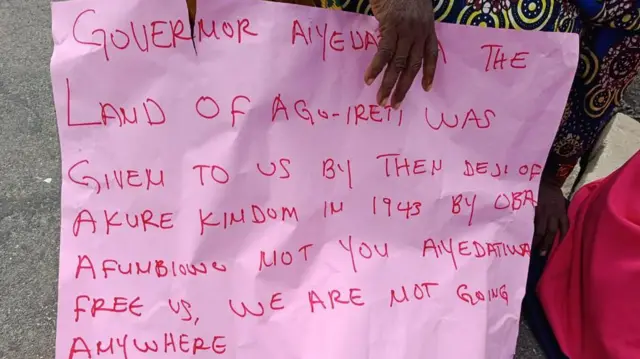 GOVERNOR AIYEDA A THE
LAND OF AGO-IRETI WAS
GIVEN TO US BY THEN DEJI OF
AKURE KINDOM IN 1943 BY OBA
AFUNBIOWO NOT YOU AIYEDATIWA
FREE US, WE ARE NOT GOING
ANYWHERE